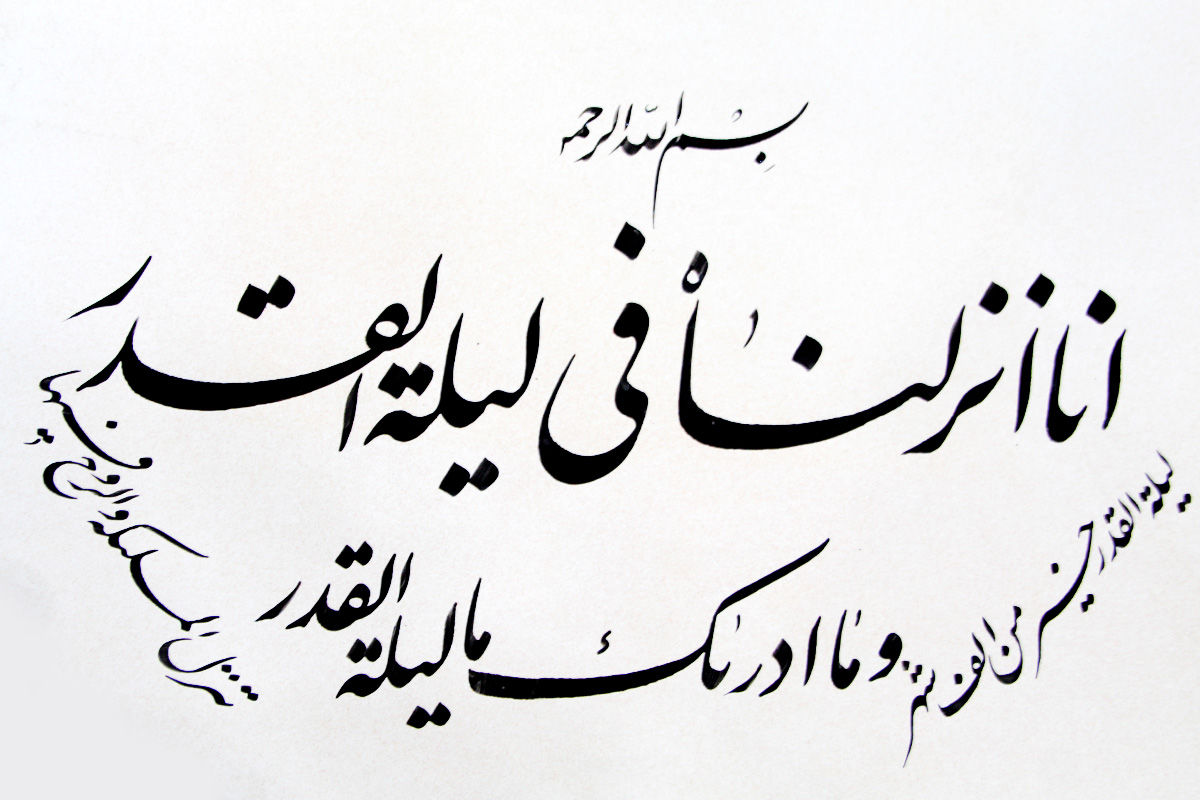 بسم الله الرحمن
انا انزلنٰاهُ فی لیلة القدر
و مٰا ادرٰىك ما لیلة القدر
لیلة القدر خیر من الف شهر
تنزل الملئکه و الروح فیها